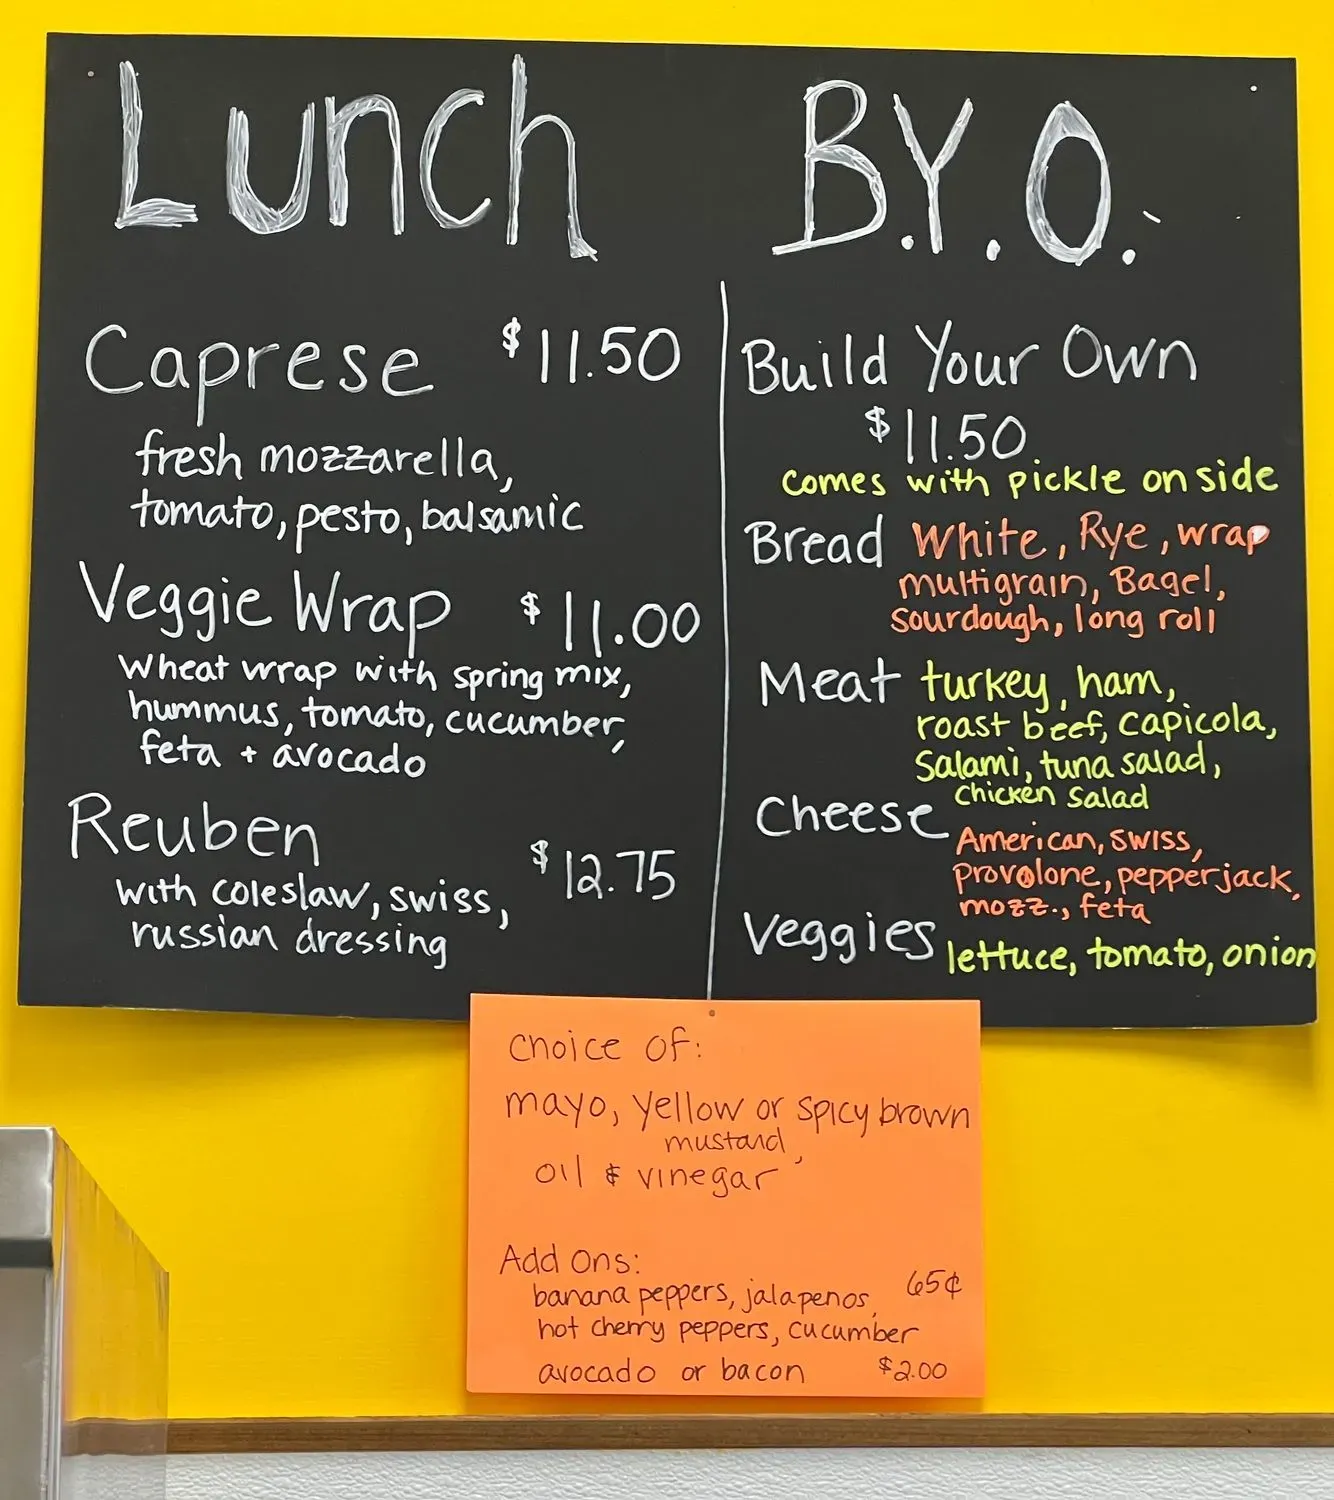 Lunch
Caprese $11.50
fresh mozzarella,
tomato, pesto, balsamic
Veggie Wrap $11.00
Wheat wrap with spring mix,
hummus, tomato, cucumber,
feta + avocado
Reuben
$12.75
with coleslaw, swiss,
russian dressing
B.Y.O.
Build Your Own
$11.50
comes with pickle on side
Bread White, Rye, wrap
multigrain, Bagel,
sourdough, long roll
Meat turkey, ham,
roast beef, capicola,
Salami, tuna salad,
chicken salad
Cheese
American, swiss,
provolone, pepperjack,
mozz., feta
Veggies
lettuce, tomato, onion
Choice of:
mayo, yellow or spicy brown
mustard,
oil & vinegar
Add Ons:
banana peppers, jalapenos, 65¢
hot cherry peppers, cucumber
avocado or bacon $2.00